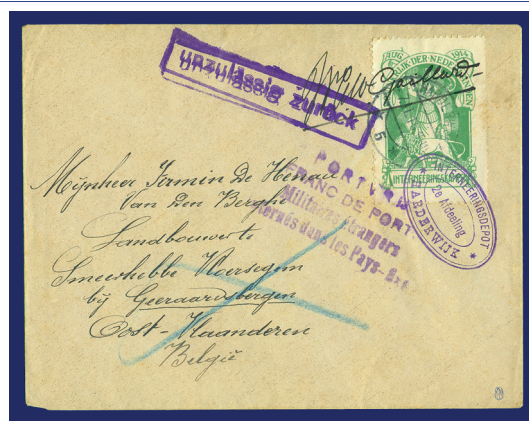 unzulässig zurück
AUG. 1914
INTERNEERINGSKAMP
PORTVRIJ
FRANC DE PORT
Militaires étrangers
internés dans les Pays-Bas
INTERNEERINGSDEPOT
2e Afdeeling
* HARDERWIJK *
Mijnheer Firmin de Henau
Van den Berghe
Landbouwer
Smeerhebbe Vloersegem
bij Geeraardsbergen
Oost-Vlaanderen
België